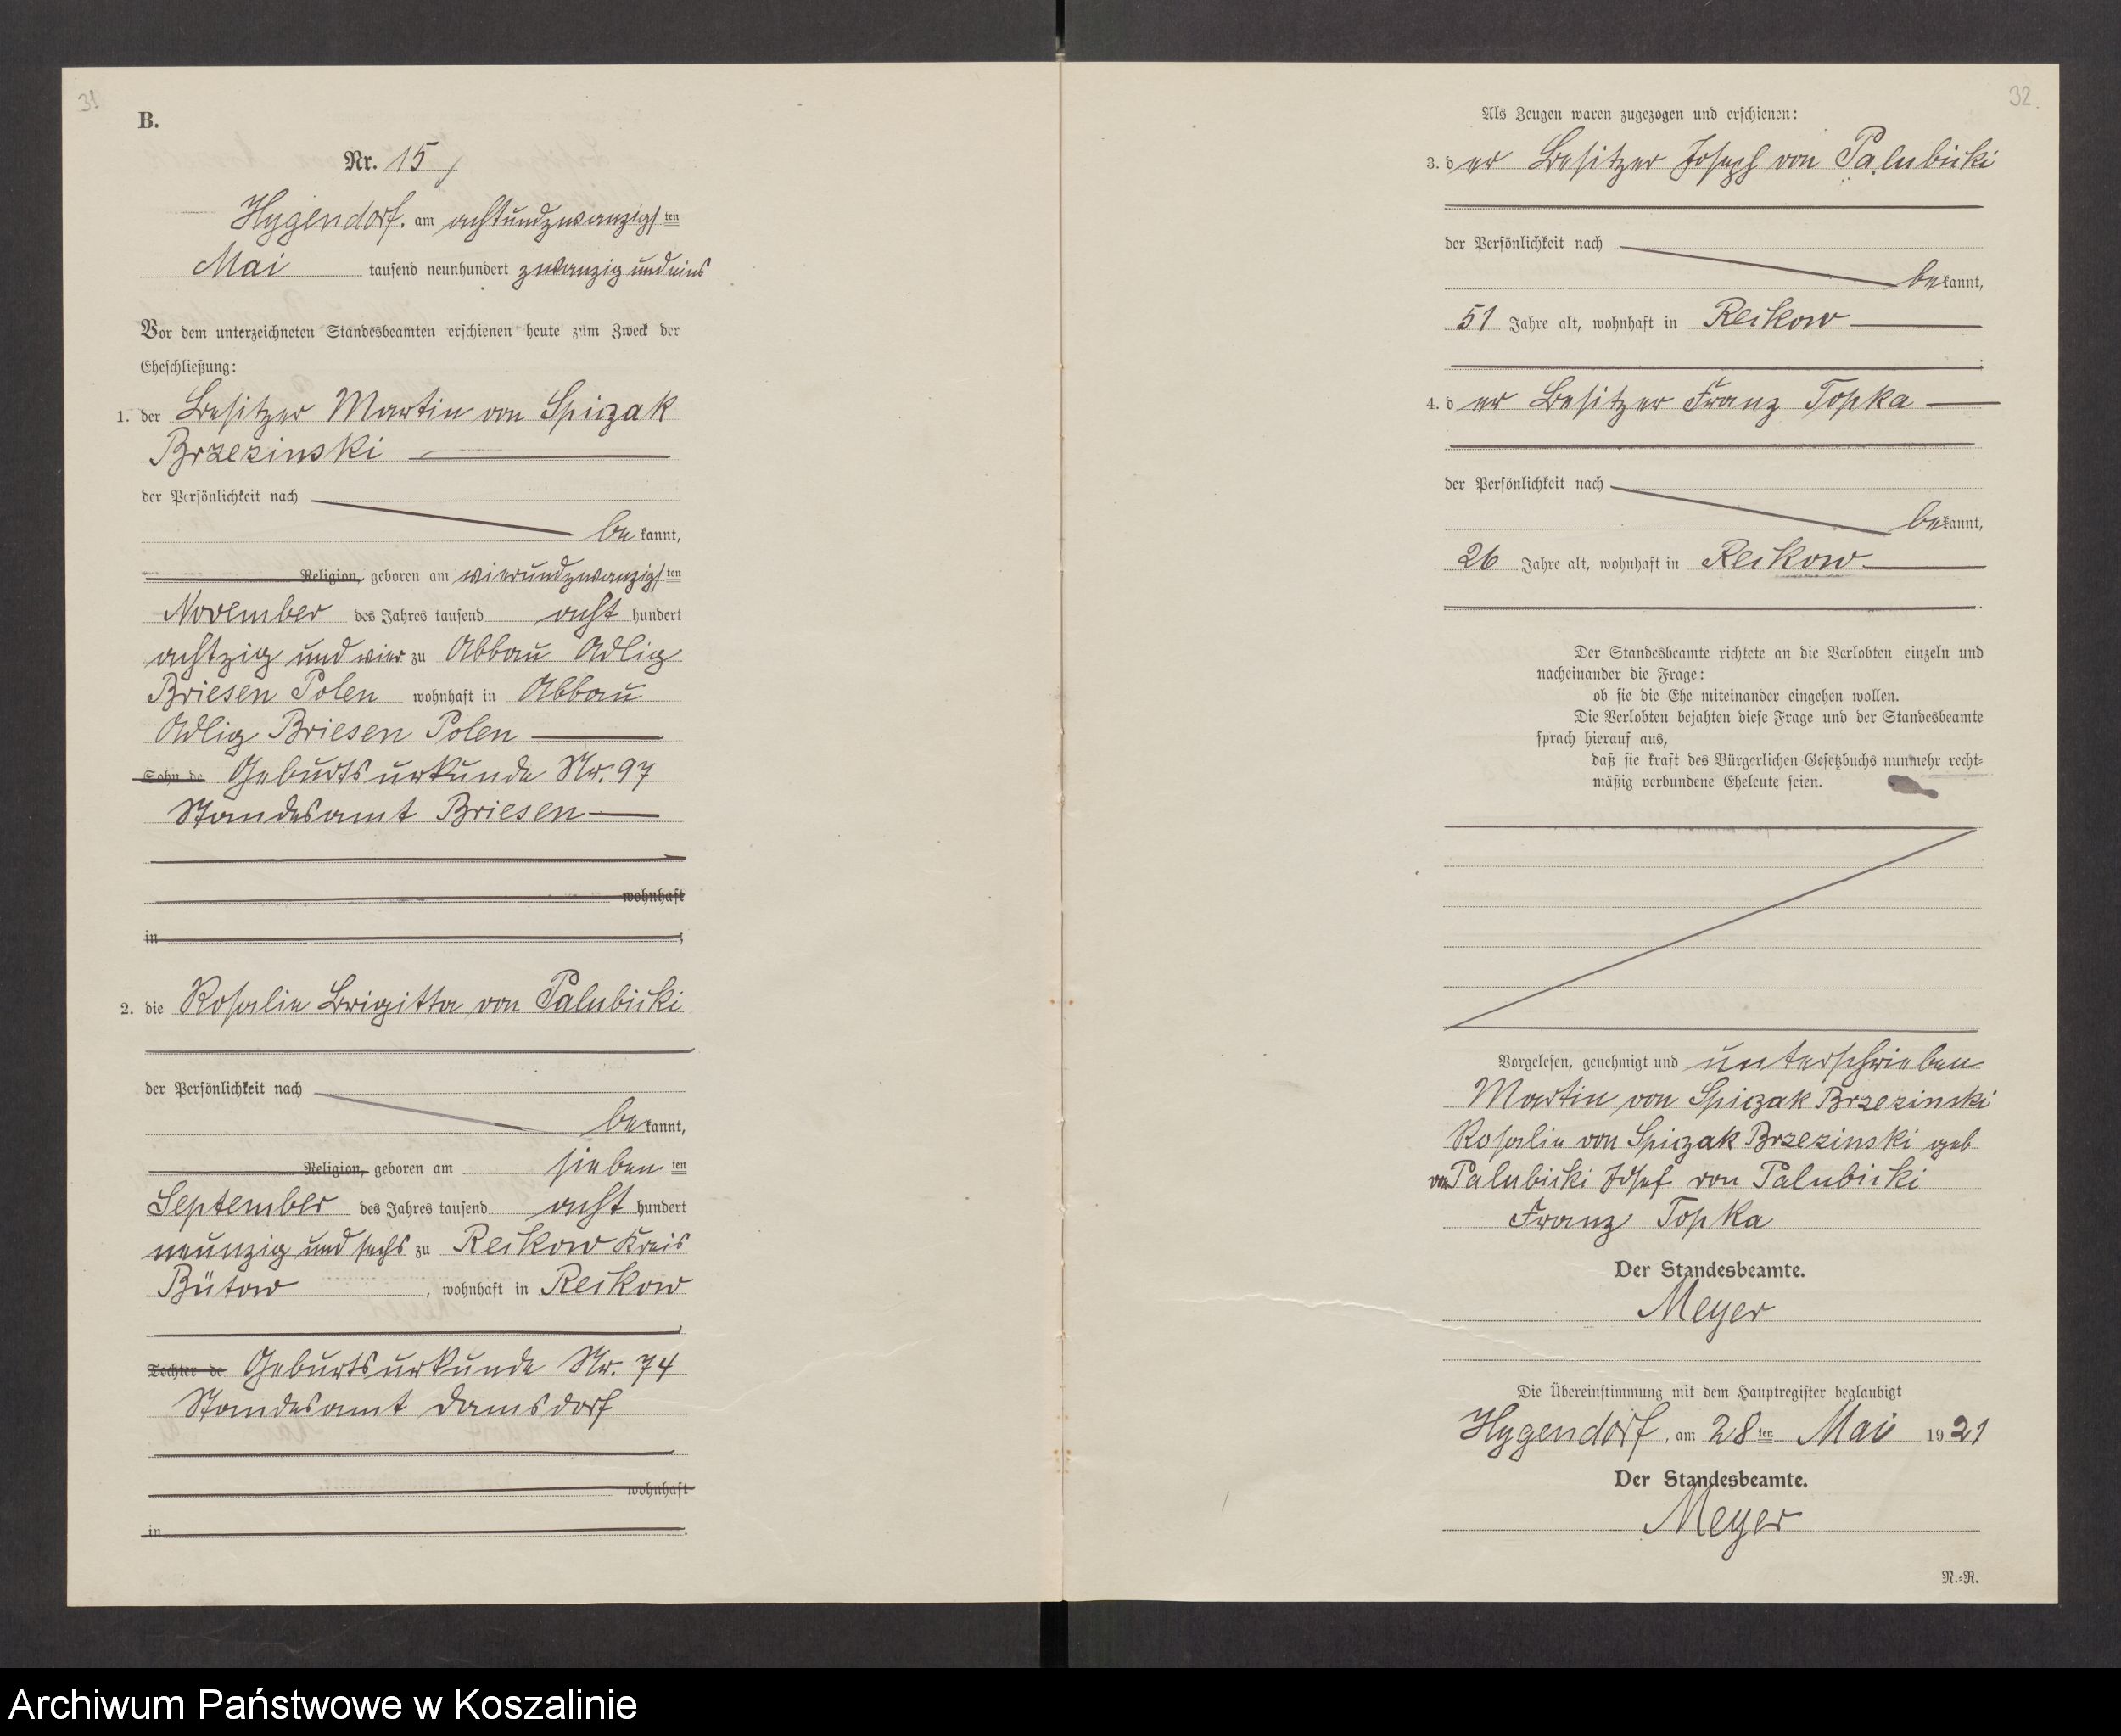 31
B.
Nr. 15
Hygendorf. am achtundzwanzigsten
Mai tausend neunhundert zwanzig und eins
Vor dem unterzeichneten Standesbeamten erschienen heute zum Zweck der
Eheschließung:
1. der Besitzer Martin von Spiczak
Brzezinski
der Persönlichkeit nach
bekannt,
Religion, geboren am vierundzwanzigsten
November des Jahres tausend acht hundert
achtzig und vier zu Abbau Adlig
Briesen Polen wohnhaft in Abbau
Adlig Briesen Polen
Sohn de Geburtsurkunde Nr. 97
Standesamt Briesen
wohnhaft
in
2. die Rosalie Brigitta von Palubicki
der Persönlichkeit nach
bekannt,
Religion, geboren am sieben ten
September des Jahres tausend acht hundert
neunzig und sechs zu Reckow Kreis
Bütow, wohnhaft in Reckow
Tochter de Geburtsurkunde Nr. 74
Standesamt Damsdorf
wohnhaft
in
32.
Als Zeugen waren zugezogen und erschienen:
3. der Besitzer Joseph von Palubicki
der Persönlichkeit nach
bekannt,
51 Jahre alt, wohnhaft in Reckow
4. der Besitzer Franz Topka
der Persönlichkeit nach
bekannt,
26 Jahre alt, wohnhaft in Reckow
Der Standesbeamte richtete an die Verlobten einzeln und
nacheinander die Frage:
ob sie die Ehe miteinander eingehen wollen.
Die Verlobten bejahten diese Frage und der Standesbeamte
sprach hierauf aus,
daß sie kraft des Bürgerlichen Gesetzbuchs nunmehr recht-
mäßig verbundene Eheleute seien.
Vorgelesen, genehmigt und unterschrieben
Martin von Spiczak Brzezinski
Rosalie von Spiczak Brzezinski geb
von Palubicki Josef von Palubicki
Franz Topka
Der Standesbeamte.
Meyer
Die Übereinstimmung mit dem Hauptregister beglaubigt
Hygendorf, am 28ten Mai 1921
Der Standesbeamte.
Meyer
N.-R.
Archiwum Państwowe w Koszalinie